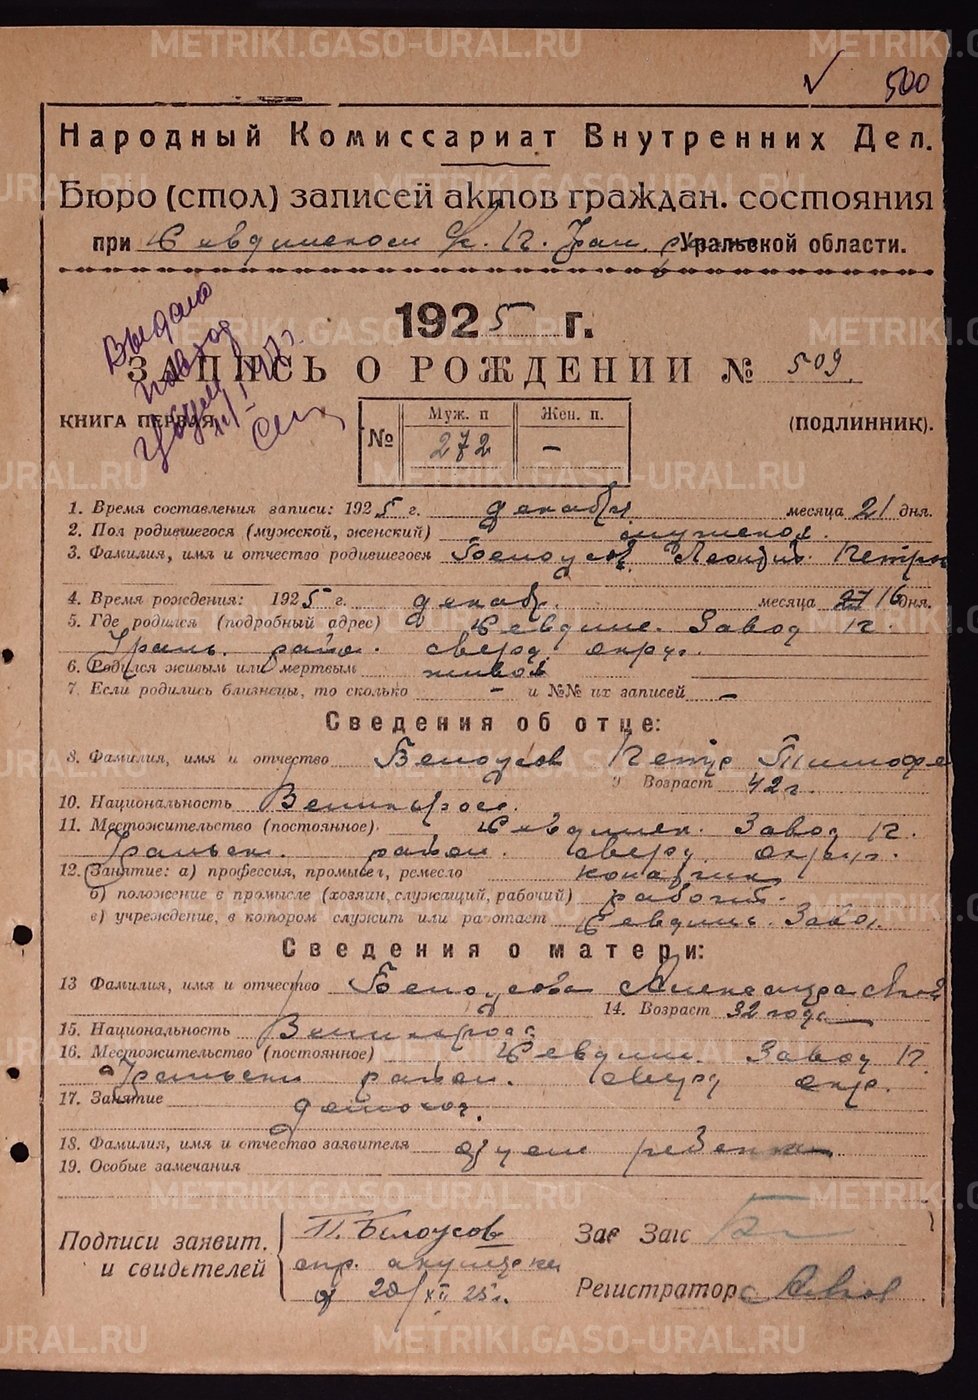 METRIKI.GASO-URAL.RU
500
Народный Комиссариат Внутренних Дел.
Бюро (стол) записей актов граждан. состояния
при Уральской области.
1925 г.
Выдано
ЗАПИСЬ О РОЖДЕНИИ № 509.
КНИГА ПЕРВАЯ
(ПОДЛИННИК).
№ Муж. п Жен. п.
272 –
1. Время составления записи: 1925 г. декабря месяца 21 дня.
2. Пол родившегося (мужской, женский) мужской.
3. Фамилия, имя и отчество родившегося Белоусов Леонид Петров
4. Время рождения: 1925 г. декабр. месяца 16 дня.
5. Где родился (подробный адрес) Завод
район. сверд. округ.
6. Родился живым или мертвым живой
7. Если родились близнецы, то сколько – и №№ их записей –
Сведения об отце:
8. Фамилия, имя и отчество Белоусов Петр Тимофе
9 Возраст 42 г.
10. Национальность Великоросс.
11. Местожительство (постоянное). Завод
Уральск. район. сверд. округ.
12. Занятие: а) профессия, промысел, ремесло
б) положение в промысле (хозяин, служащий, рабочий) работ.
в) учреждение, в котором служит или работает Завод.
Сведения о матери:
13 Фамилия, имя и отчество Белоусова Александра
14. Возраст 32 года
15. Национальность Великоросс
16. Местожительство (постоянное) Завод
Уральски район. сверд окр.
17. Занятие домохоз.
18. Фамилия, имя и отчество заявителя отец ребенка
19. Особые замечания
Подписи заявит. и свидетелей
П. Белоусов
спр. акушерки
от 20/XII 25 г.
Зав Загс
Регистратор